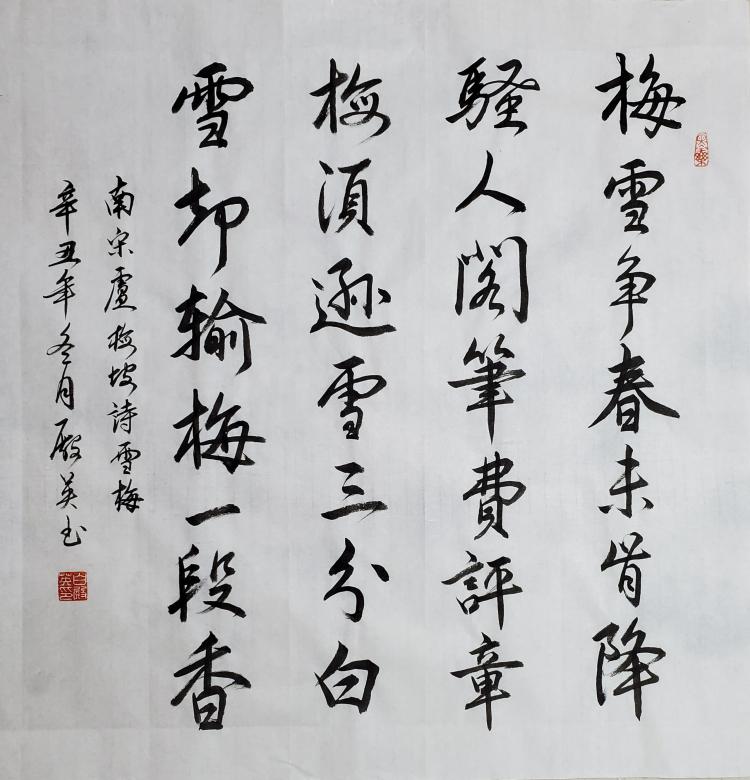 梅雪争春未肯降
騷人閣筆費評章
梅須遜雪三分白
雪却输梅一段香
南宋盧梅坡詩雪梅
辛丑年冬月殿英书
白殿英印